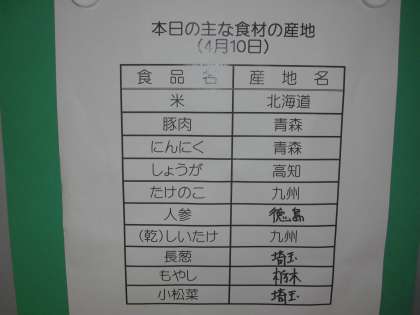 本日の主な食材の産地
(4月10日)
食品名 産地名
米 北海道
豚肉 青森
にんにく 青森
しょうが 高知
たけのこ 九州
人参 徳島
(乾)しいたけ 九州
長葱 埼玉
もやし 栃木
小松菜 埼玉